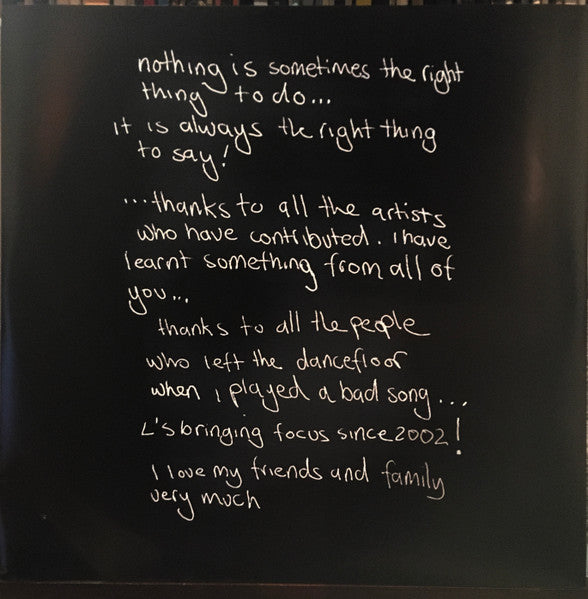 nothing is sometimes the right
thing to do...
it is always the right thing
to say!
...thanks to all the artists
who have contributed. i have
learnt something from all of
you...
thanks to all the people
who left the dancefloor
when i played a bad song...
L's bringing focus since 2002!
I love my friends and family
very much